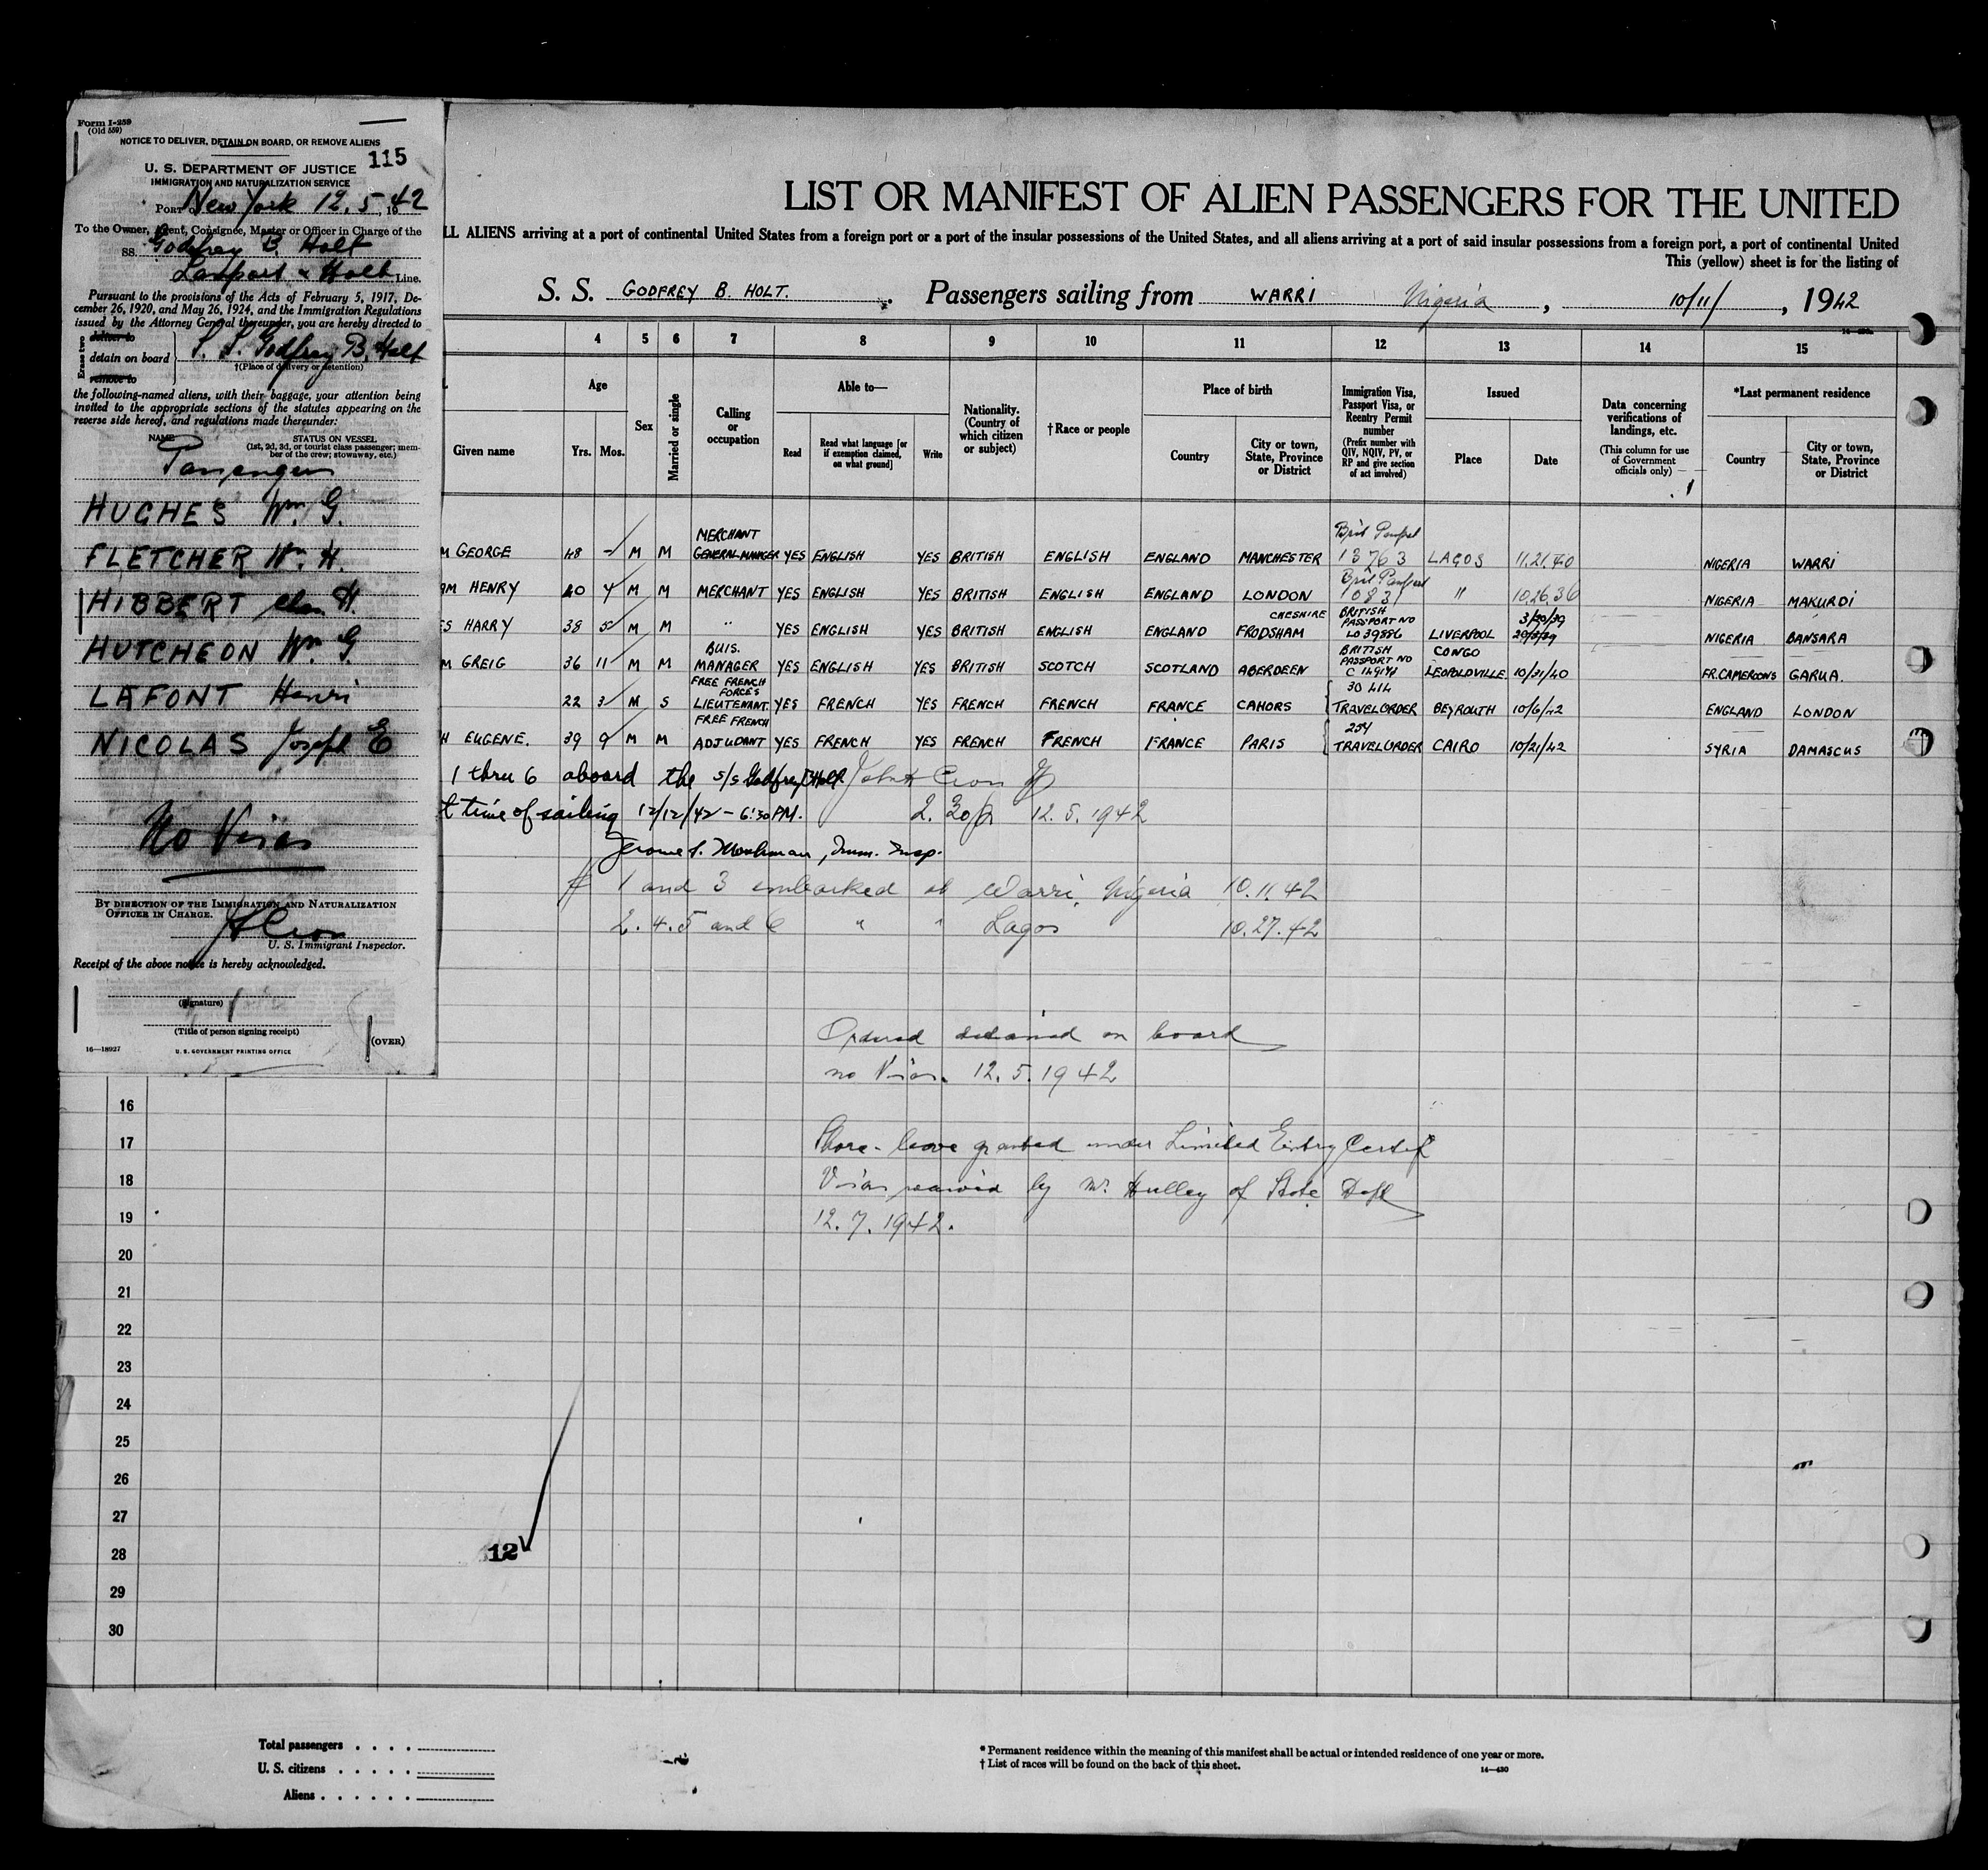 Form I-259
(Old 559)
NOTICE TO DELIVER, DETAIN ON BOARD, OR REMOVE ALIENS
115
U. S. DEPARTMENT OF JUSTICE
IMMIGRATION AND NATURALIZATION SERVICE
PORT OF New York 12.5, 1942
To the Owner, Agent, Consignee, Master or Officer in Charge of the
SS. Godfrey B. Holt
Lamport & Holt Line.
Pursuant to the provisions of the Acts of February 5, 1917, De-
cember 26, 1920, and May 26, 1924, and the Immigration Regulations
issued by the Attorney General thereunder, you are hereby directed to
Erase two
deliver to
detain on board S. S. Godfrey B. Holt
remove to
†(Place of delivery or detention)
the following-named aliens, with their baggage, your attention being
invited to the appropriate sections of the statutes appearing on the
reverse side hereof, and regulations made thereunder:
NAME
STATUS ON VESSEL
(1st, 2d, 3d, or tourist class passenger; mem-
ber of the crew; stowaway, etc.)
Passengers
HUGHES Wm. G.
FLETCHER Wm. H.
HIBBERT Chas H.
HUTCHEON Wm. G.
LAFONT Henri
NICOLAS Joseph E
No Visas
BY DIRECTION OF THE IMMIGRATION AND NATURALIZATION
OFFICER IN CHARGE.
U. S. Immigrant Inspector.
Receipt of the above notice is hereby acknowledged.
(Signature)
(Title of person signing receipt)
16—18927
U. S. GOVERNMENT PRINTING OFFICE
(OVER)
LIST OR MANIFEST OF ALIEN PASSENGERS FOR THE UNITED
LL ALIENS arriving at a port of continental United States from a foreign port or a port of the insular possessions of the United States, and all aliens arriving at a port of said insular possessions from a foreign port, a port of continental United
This (yellow) sheet is for the listing of
S. S. GODFREY B. HOLT. Passengers sailing from WARRI Nigeria, 10/11/, 1942
4 5 6 7 8 9 10 11 12 13 14 15
Given name
Age
Yrs. Mos.
Sex
Married or single
Calling
or
occupation
Able to—
Read
Read what language [or
if exemption claimed,
on what ground]
Write
Nationality.
(Country of
which citizen
or subject)
†Race or people
Place of birth
Country
City or town,
State, Province
or District
Immigration Visa,
Passport Visa, or
Reentry Permit
number
(Prefix number with
QIV, NQIV, PV, or
RP and give section
of act involved)
Issued
Place
Date
Data concerning
verifications of
landings, etc.
(This column for use
of Government
officials only)
*Last permanent residence
Country
City or town,
State, Province
or District
MERCHANT Brit Passpt
M GEORGE 48 - M M GENERAL MANAGER YES ENGLISH YES BRITISH ENGLISH ENGLAND MANCHESTER 13763 LAGOS 11.21.40 NIGERIA WARRI
Brit Passport
AM HENRY 40 4 M M MERCHANT YES ENGLISH YES BRITISH ENGLISH ENGLAND LONDON 10831 " 10.26.36 NIGERIA MAKURDI
CHESHIRE BRITISH PASSPORT NO 3/20/39
ES HARRY 38 5 M M " YES ENGLISH YES BRITISH ENGLISH ENGLAND FRODSHAM LO 39886 LIVERPOOL NIGERIA BANSARA
BUIS. BRITISH PASSPORT NO CONGO
M GREIG 36 11 M M MANAGER YES ENGLISH YES BRITISH SCOTCH SCOTLAND ABERDEEN LEOPOLDVILLE 10/31/40 FR.CAMEROONS GARUA.
FREE FRENCH FORCES 30 414
22 3 M S LIEUTENANT. YES FRENCH YES FRENCH FRENCH FRANCE CAHORS TRAVEL ORDER BEYROUTH 10/6/42 ENGLAND LONDON
FREE FRENCH 254
H EUGENE. 39 9 M M ADJUDANT YES FRENCH YES FRENCH FRENCH FRANCE PARIS TRAVEL ORDER CAIRO 10/21/42 SYRIA DAMASCUS
1 thru 6 aboard the s/s Godfrey B Holt
t time of sailing 12/12/42 - 6:30 PM. 2.30p 12.5.1942
Jerome Imm. Insp.
1 and 3 embarked at Warri, Nigeria 10.11.42
2.4.5 and 6 " " Lagos 10.27.42
Ordered detained on board
no Visas. 12.5.1942
Shore-leave granted under Limited Entry Certif
Visas waived by Mr Hulley of State Dept
12.7.1942.
16
17
18
19
20
21
22
23
24
25
26
27
28
29
30
12
Total passengers
U. S. citizens
Aliens
* Permanent residence within the meaning of this manifest shall be actual or intended residence of one year or more.
† List of races will be found on the back of this sheet.
14—430